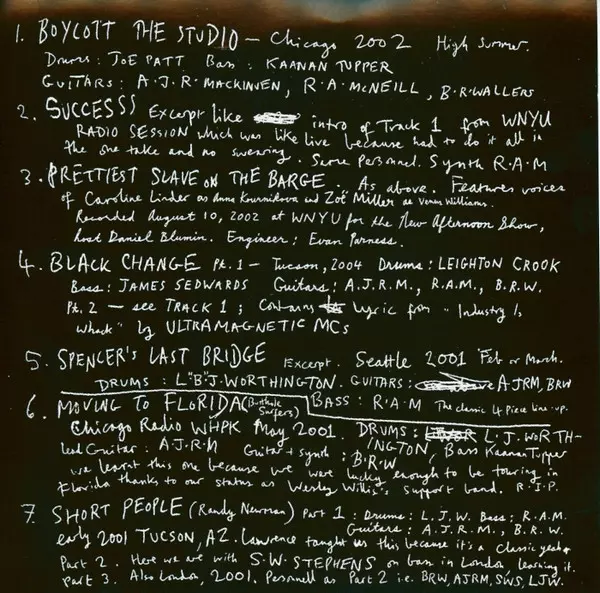 1. BOYCOTT THE STUDIO – Chicago 2002 High Summer.
Drums: JOE PATT Bass: KAANAN TUPPER
GUITARS: A.J.R. MACKINVEN, R.A. McNEILL, B.R. WALLERS
2. SUCCESS Excerpt like intro of Track 1 from WNYU
RADIO SESSION which was like live because had to do it all in
the one take and no swearing. Same Personnel. Synth R.A.M
3. PRETTIEST SLAVE ON THE BARGE. As above. Features voices
of Caroline Linder as Anna Kournikova and Zoë Miller as Venus Williams.
Recorded August 10, 2002 at WNYU for the New Afternoon Show,
host Daniel Blumin. Engineer: Evan Parness.
4. BLACK CHANGE Pt. 1 – Tucson, 2004 Drums: LEIGHTON CROOK
Bass: JAMES SEDWARDS Guitars: A.J.R.M., R.A.M., B.R.W.
Pt. 2 – see TRACK 1; Contains lyric from "Industry Is
Whack" by ULTRAMAGNETIC MCs
5. SPENCER'S LAST BRIDGE Excerpt. Seattle 2001 Feb or March.
DRUMS: L."B"J. WORTHINGTON. GUITARS: AJRM, BRW
BASS: R.A.M The classic 4 piece line-up.
6. MOVING TO FLORIDA (Butthole Surfers)
Chicago Radio WHPK May 2001. DRUMS: L.J. WORTH-
INGTON, Bass Kaanan Tupper
lead Guitar: A.J.R.M Guitar + synth: B.R.W
we learnt this one because we were lucky enough to be touring in
Florida thanks to our status as Wesley Willis's support band. R.I.P.
7. SHORT PEOPLE (Randy Newman) Part 1: Drums: L.J.W. Bass: R.A.M.
Guitars: A.J.R.M., B.R.W.
early 2001 TUCSON, AZ. Lawrence taught us this because it's a classic yeah
Part 2. Here we are with S.W. STEPHENS on bass in London, learning it.
Part 3. Also London, 2001. Personnell as Part 2 i.e. BRW, AJRM, SWS, LJW.